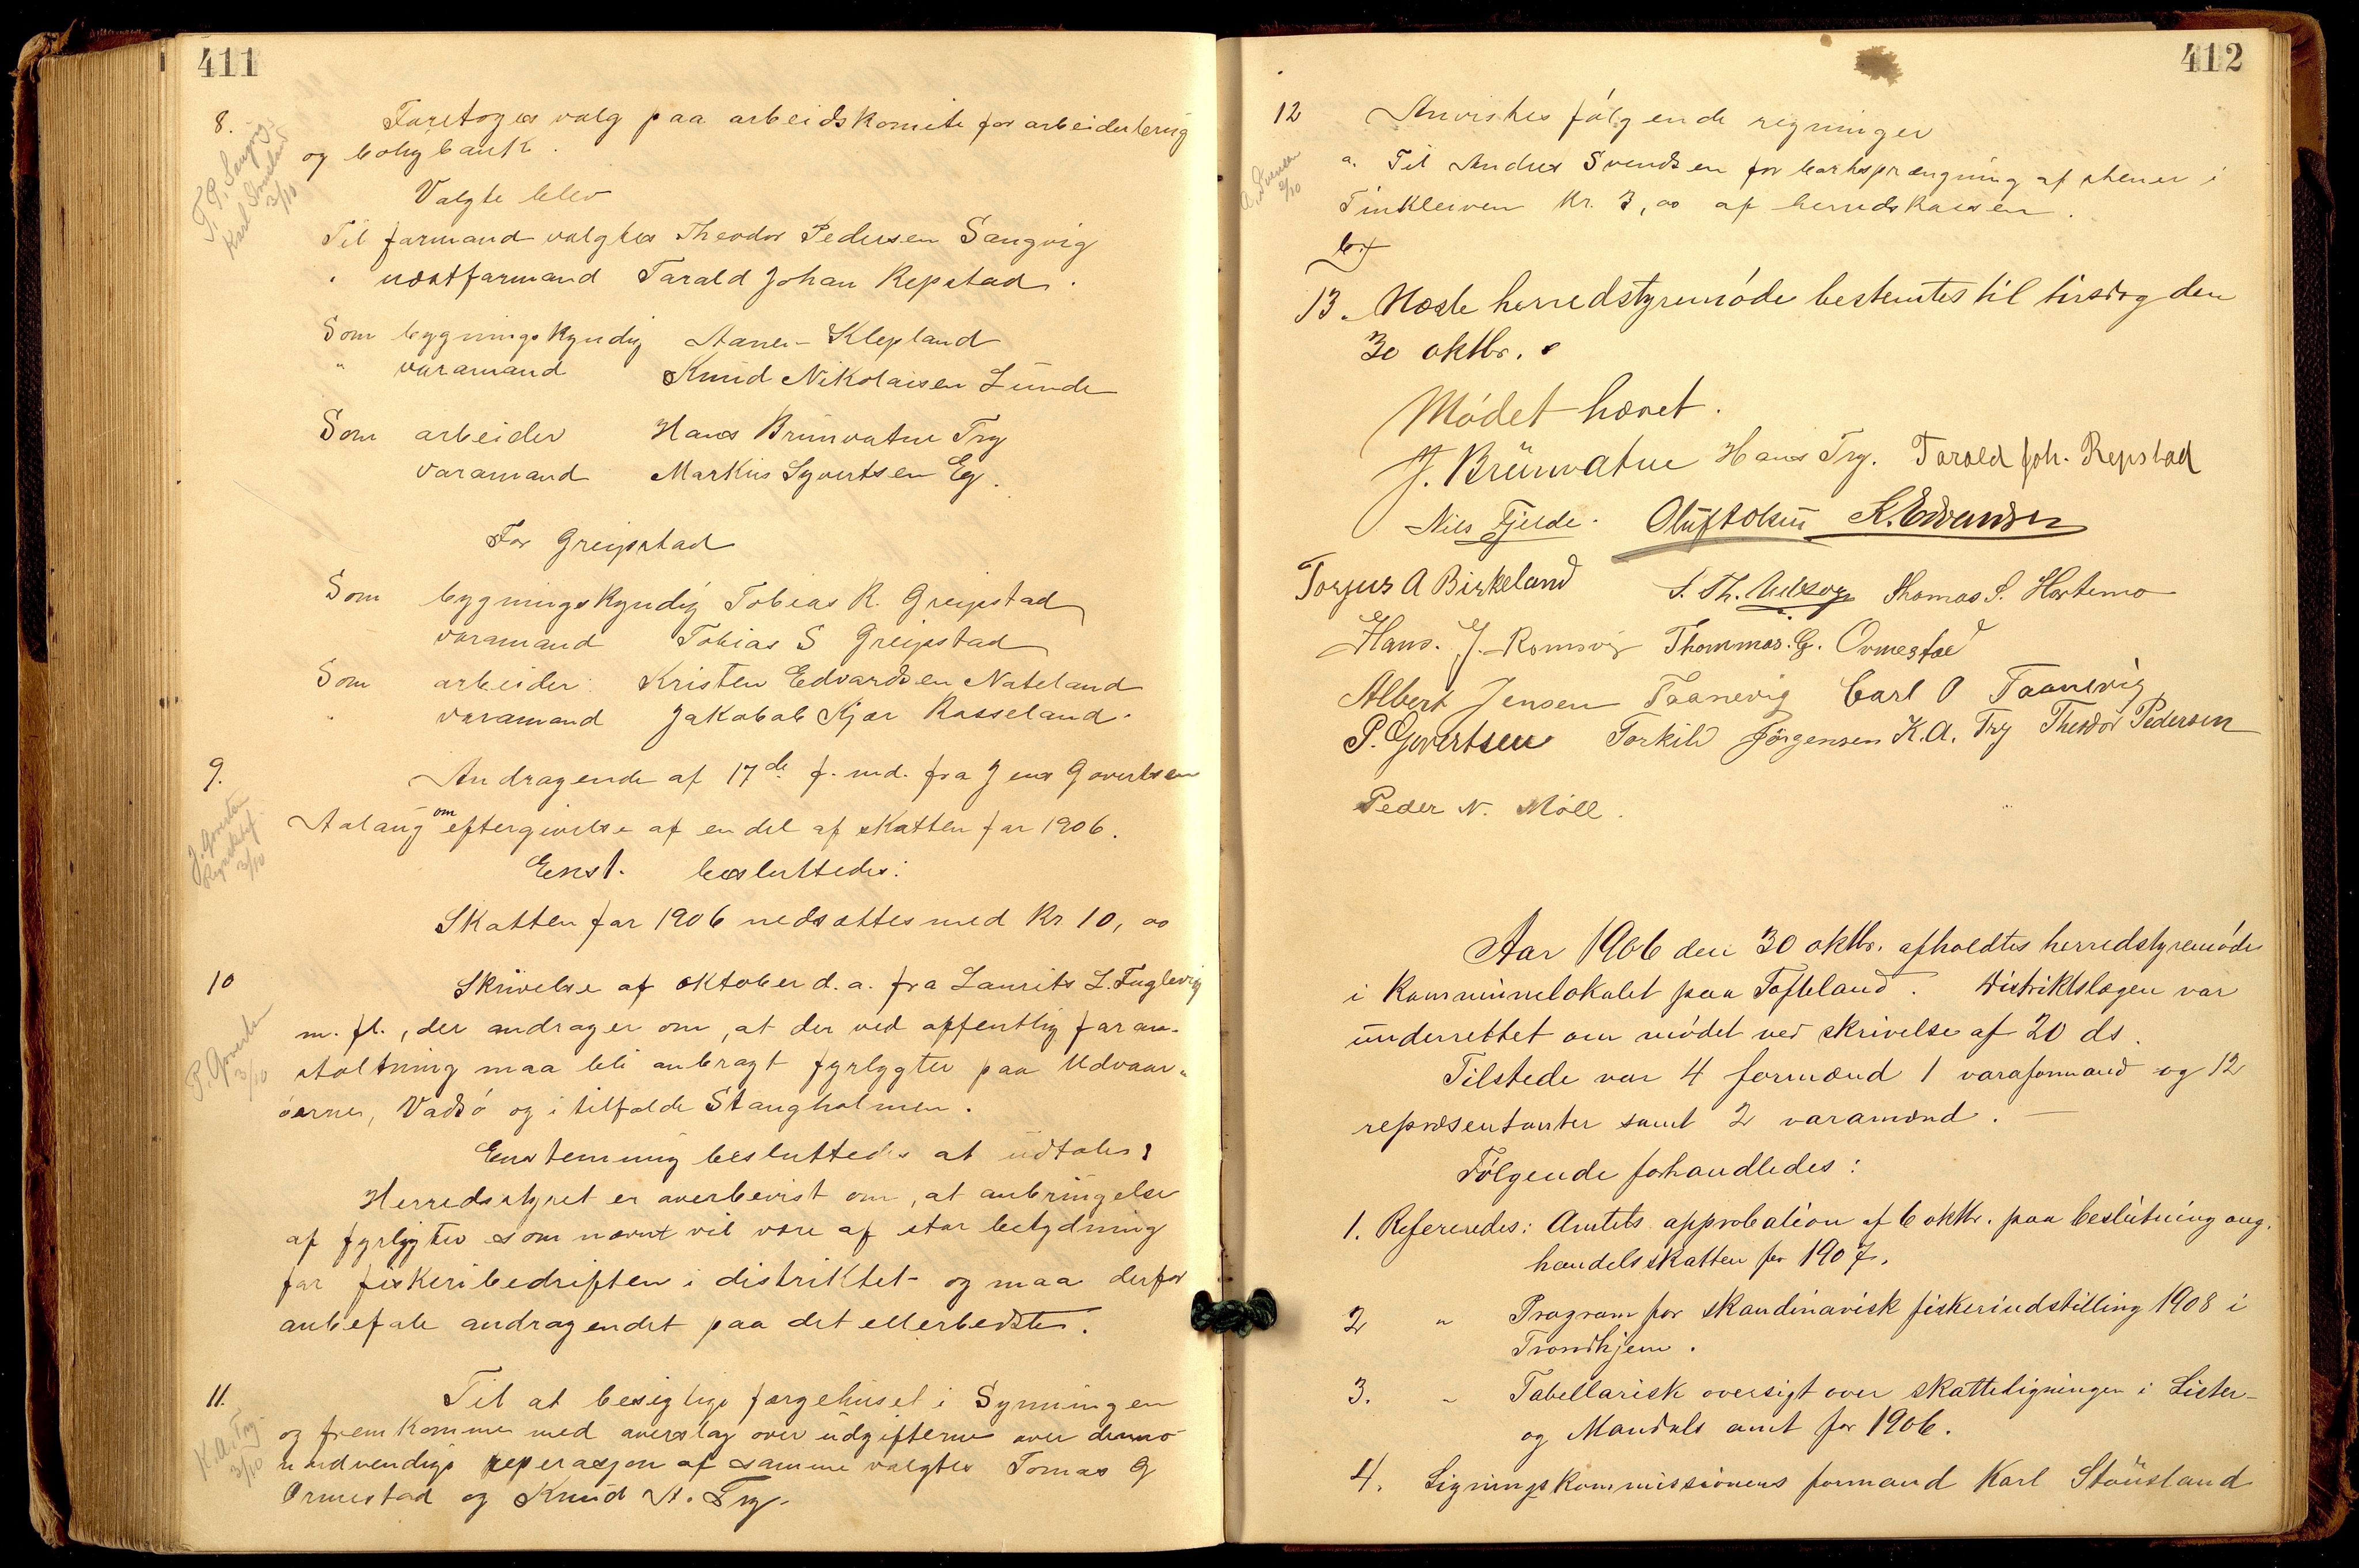 411
8. Foretoges valg paa arbeidskomite for arbeiderbrug
og boligbank.
Valgte blev
Til formand valgtes Theodor Pedersen Sangvig
" næstformand Tarald Johan Repstad.
Som bygningskyndig Aanen Klepland
" varamand Knud Nikolaisen Lunde
Som arbeider Hans Brunvatne Try
varamand Markus Syvertsen Eg.
For Greipstad
Som bygningskyndig Tobias R. Greipstad
varamand Tobias S Greipstad
Som arbeider Kristen Edvardsen Nateland
" varamand Jakobab Kjær Rosseland.
9. Andragende af 17de f. md. fra Jens Govertsen
Aalaug om eftergivelse af en del af skatten for 1906.
J. Govertsen
3/10
Enst. besluttedes:
Skatten for 1906 nedsættes med Kr. 10,00
10 Skrivelse af oktober d.a. fra Laurits L. Fuglevig
m. fl., der andrager om, at der ved offentlig foran-
staltning maa bli anbragt fyrlygter paa Udvaar-
øerne, Vadsø og i tilfælde Stangholmen.
P. Govertsen
3/10
Enstemmig besluttedes at udtale:
Herredsstyret er overbevist om, at anbringelse
af fyrlygter som nævnt vil være af stor betydning
for fiskeribedriften i distriktet og maa derfor
anbefale andragendet paa det allerbedste.
11. Til at besigtige færgehuset i Symningen
og fremkomme med overslag over udgifterne over denne
nødvendige reperasjon af samme valgtes Tomas G
Ormestad og Knud A. Try.
K.A. Try
3/10
412
12 Anvistes følgende regninger
a. Til Andres Svendsen for bortsprængning af stener i
Finkleiven Kr. 3,00 af herredskassen.
A. Svensen
2/10
b.
13. Næste herredstyremøde bestemtes til tirsdag den
30 oktbr.
Mødet hævet.
J. Brunvatne Hans Try. Tarald Joh. Repstad
Nils Fjelde. Oluf Olsen K. Edvardsen
Torjus A Birkeland S. Th. Thomas S. Hortemo
Hans. J. Romsvig Thommas. G. Ormestad
Albert Jensen Taanevig Carl O Taanevig
P. Govertsen Torkild Jörgensen K.A. Try Theodor Pedersen
Peder N. Möll.
Aar 1906 den 30 oktbr. afholdtes herredstyremøde
i Kommunelokalet paa Tofteland. Distriktslægen var
underrettet om mødet ved skrivelse af 20 ds.
Tilstede var 4 formænd 1 varaformand og 12
repræsentanter samt 2 varamænd. —
Følgende forhandledes:
1. Refereredes: Amtets approbation af 6 oktbr. paa beslutning ang.
handelsskatten for 1907.
2 " Program for skandinavisk fiskeriudstilling 1908 i
Trondhjem.
3. " Tabellarisk oversigt over skatteligningen i Lister-
og Mandals amt for 1906.
4. Ligningskommissionens formand Karl Stousland